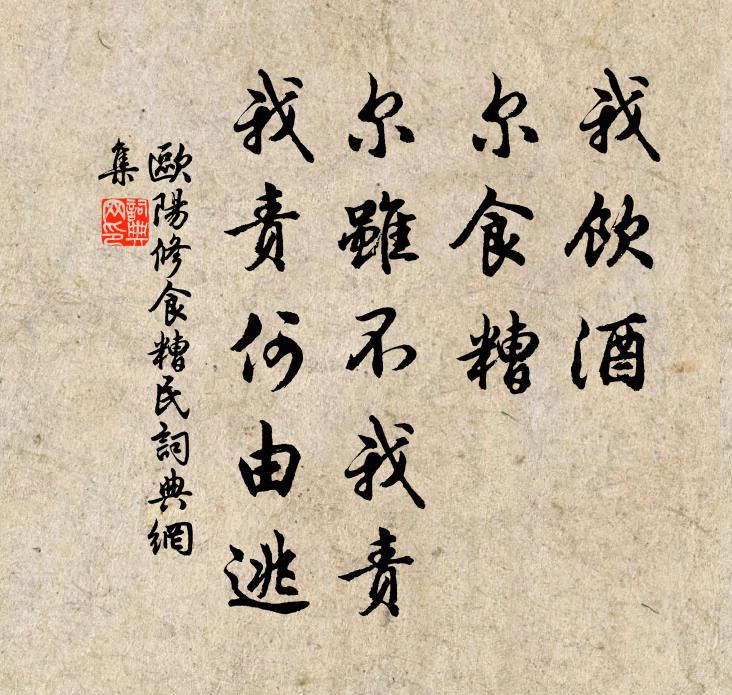 我飲酒
尔食糟
尔雖不我責
我責何由逃
歐陽修食糟民詞典網
集
詞典
网印